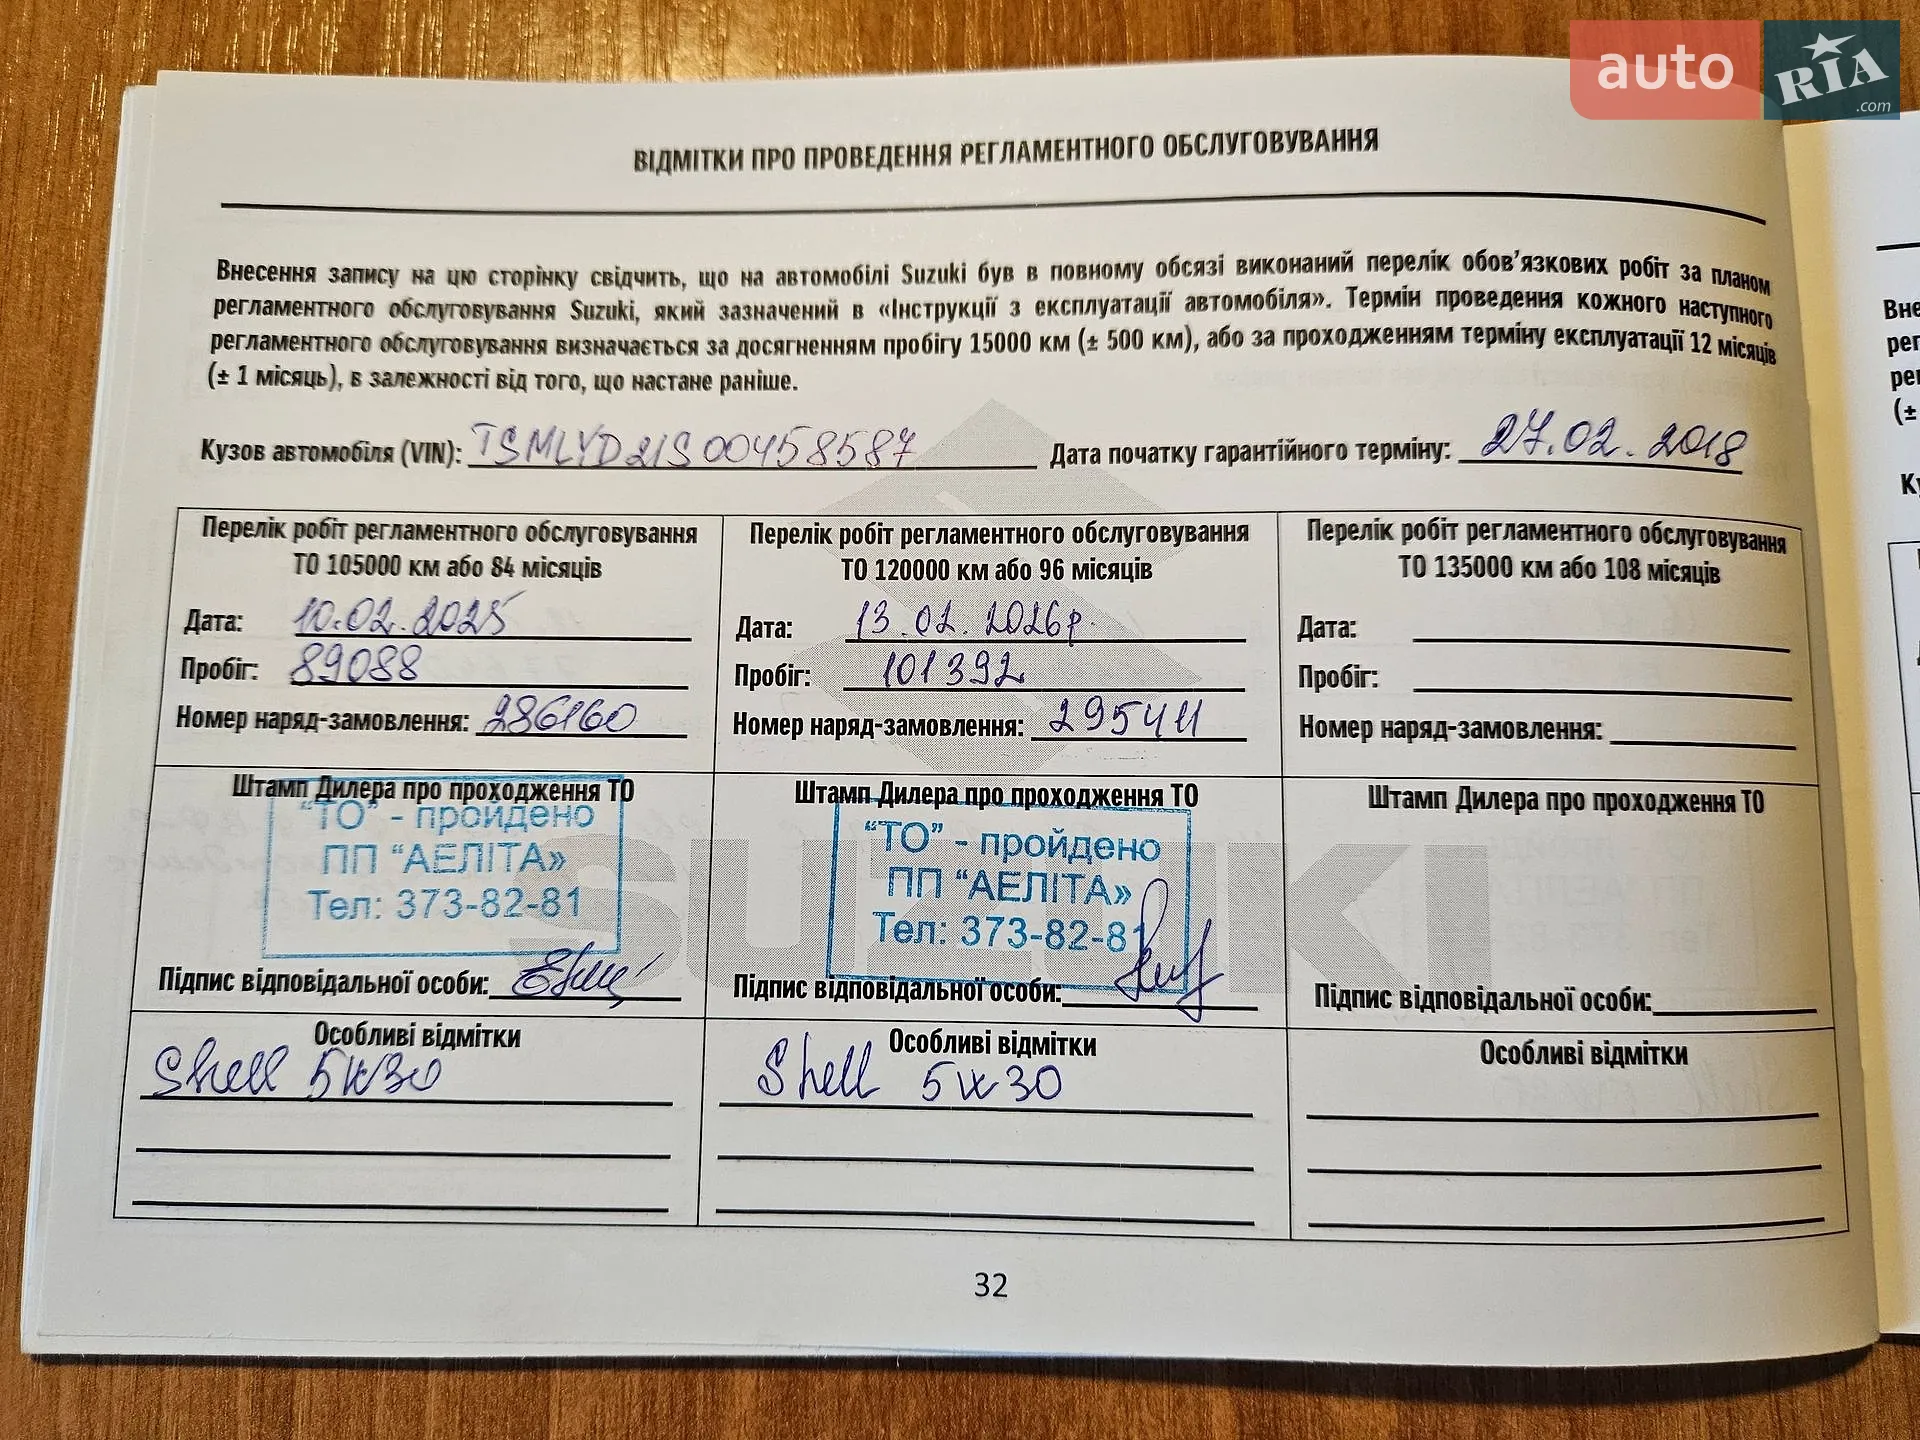 auto RIA.com
ВІДМІТКИ ПРО ПРОВЕДЕННЯ РЕГЛАМЕНТНОГО ОБСЛУГОВУВАННЯ
Внесення запису на цю сторінку свідчить, що на автомобілі Suzuki був в повному обсязі виконаний перелік обов’язкових робіт за планом
регламентного обслуговування Suzuki, який зазначений в «Інструкції з експлуатації автомобіля». Термін проведення кожного наступного
регламентного обслуговування визначається за досягненням пробігу 15000 км (± 500 км), або за проходженням терміну експлуатації 12 місяців
(± 1 місяць), в залежності від того, що настане раніше.
Кузов автомобіля (VIN): TSMLYD21S00458587 Дата початку гарантійного терміну: 27.02.2018
Перелік робіт регламентного обслуговування
ТО 105000 км або 84 місяців
Дата: 10.02.2025
Пробіг: 89088
Номер наряд-замовлення: 286160
Штамп Дилера про проходження ТО
“ТО” - пройдено
ПП “АЕЛІТА»
Тел: 373-82-81
Підпис відповідальної особи:
Особливі відмітки
Shell 5W30
Перелік робіт регламентного обслуговування
ТО 120000 км або 96 місяців
Дата: 13.02.2026р.
Пробіг: 101392
Номер наряд-замовлення: 295411
Штамп Дилера про проходження ТО
“ТО” - пройдено
ПП “АЕЛІТА»
Тел: 373-82-81
Підпис відповідальної особи:
Особливі відмітки
Shell 5W30
Перелік робіт регламентного обслуговування
ТО 135000 км або 108 місяців
Дата:
Пробіг:
Номер наряд-замовлення:
Штамп Дилера про проходження ТО
Підпис відповідальної особи:
Особливі відмітки
SUZUKI
32